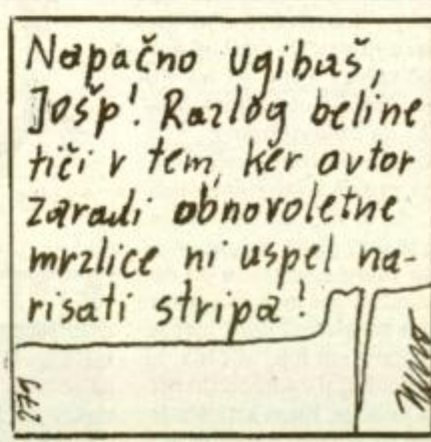 Napačno ugibaš,
Jošp! Razlog beline
tiči v tem, ker avtor
zaradi obnovoletne
mrzlice ni uspel na-
risati stripa!